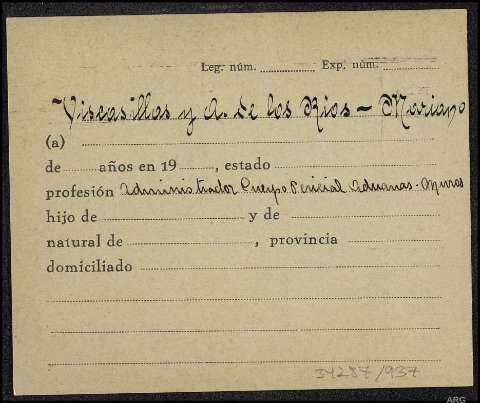 Leg. núm. Exp. núm.
Viscasillas y A. de los Rios - Mariano
(a)
de años en 19 , estado
profesión Administrador Cuerpo Pericial Aduanas.
hijo de y de
natural de , provincia
domiciliado
34287/937
ARG